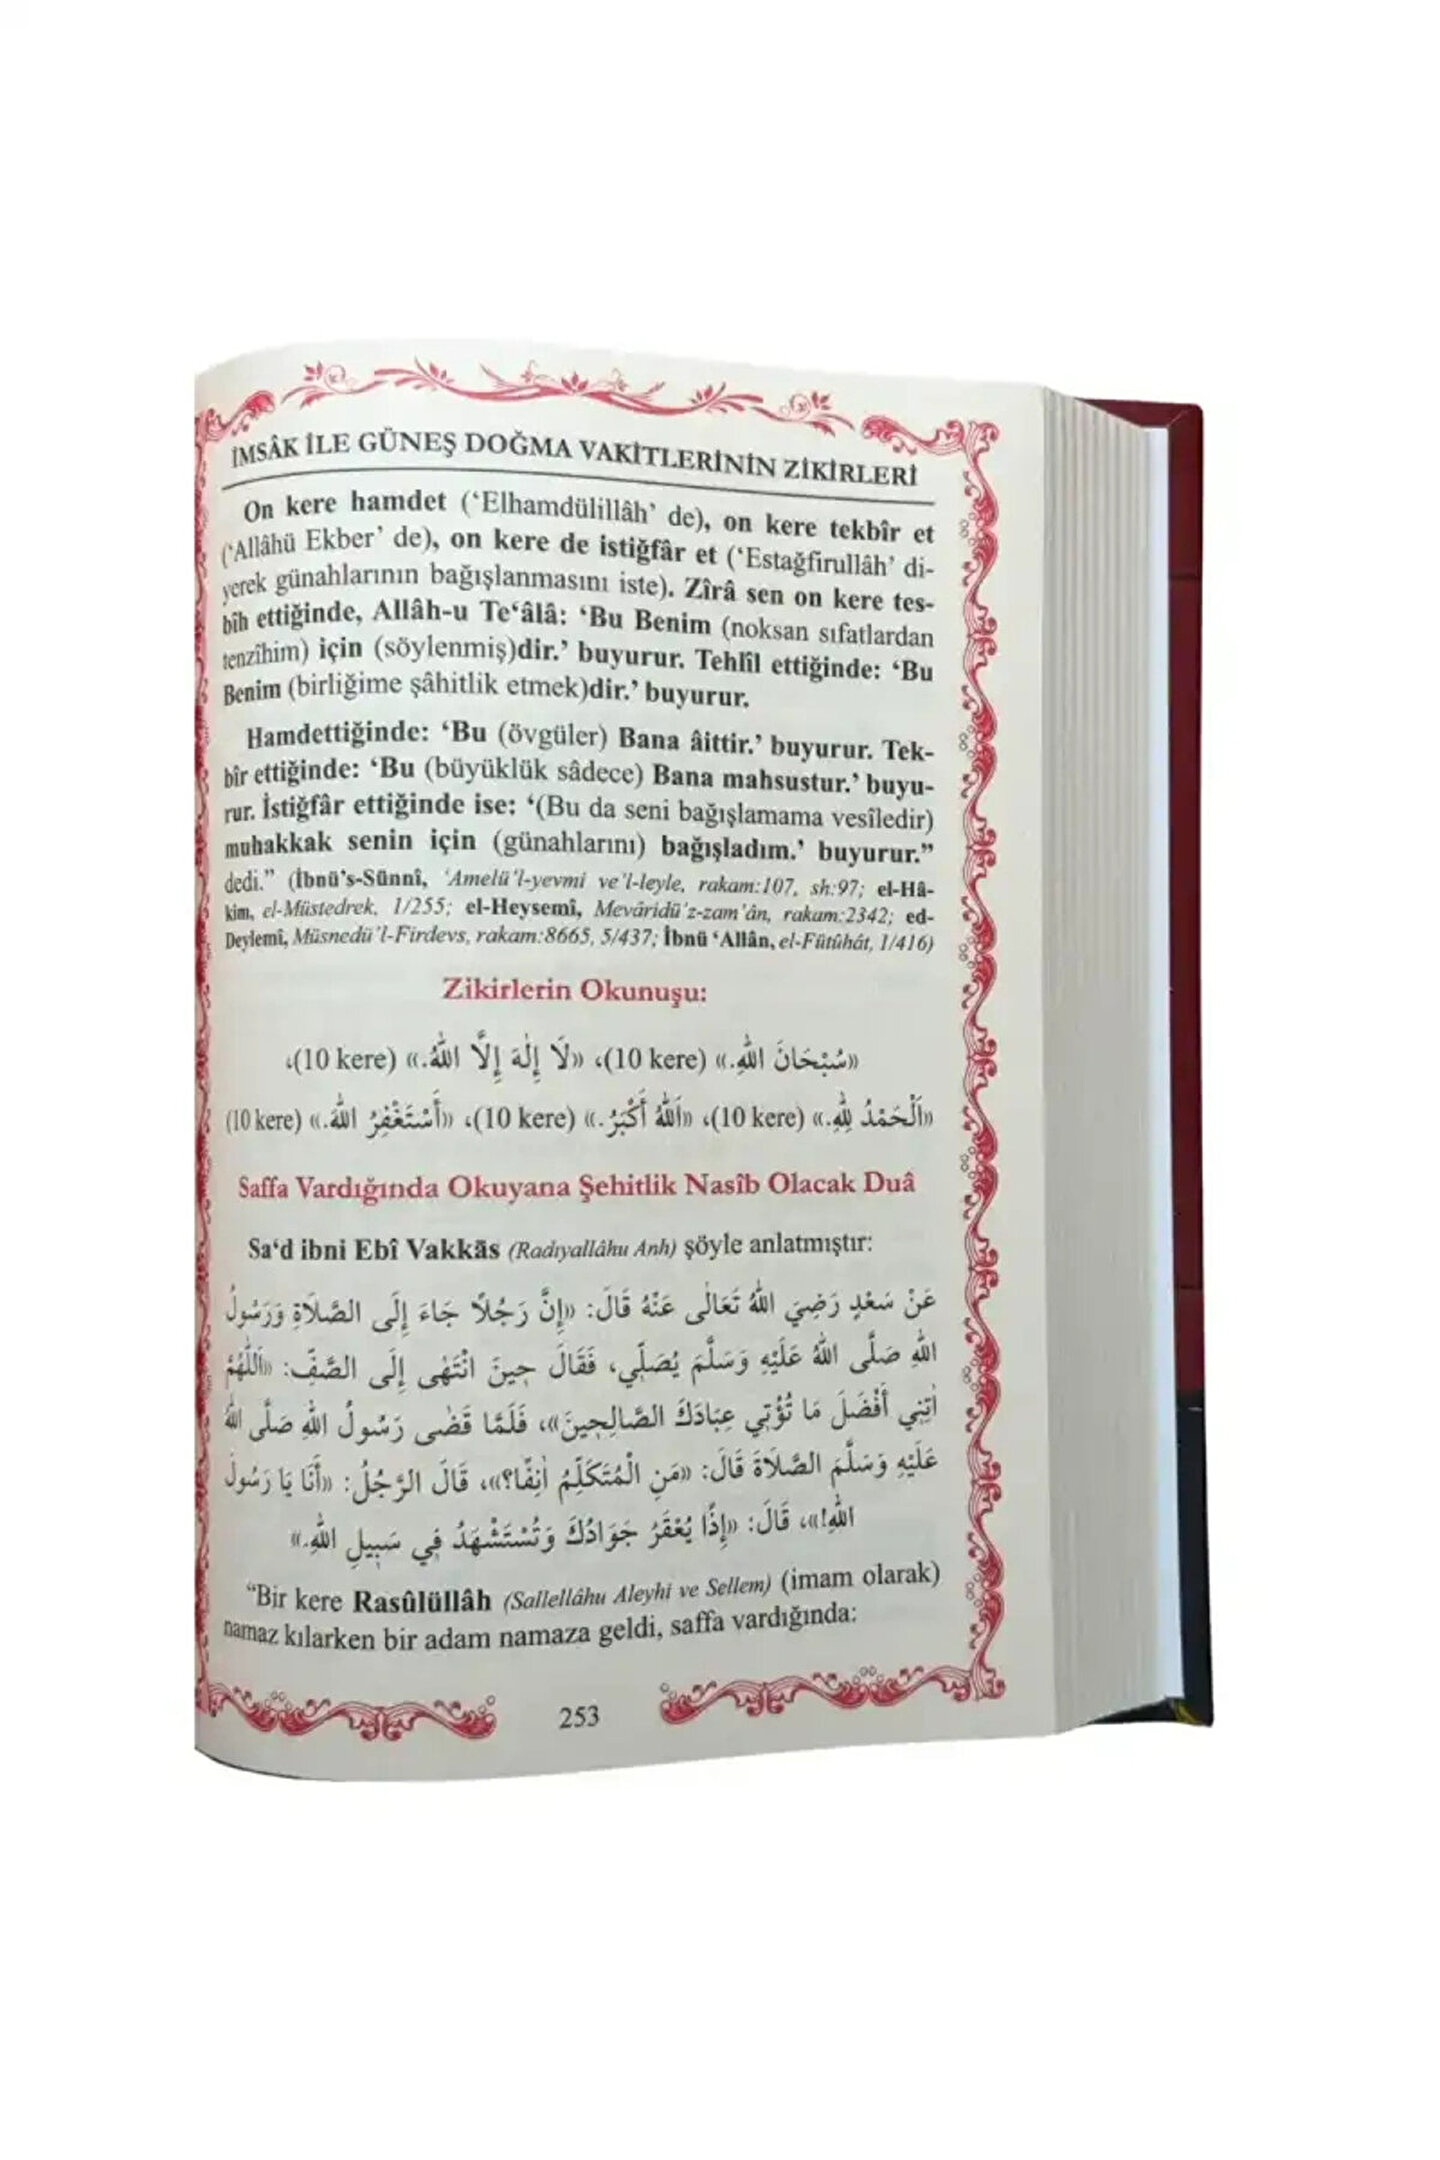 İMSÂK İLE GÜNEŞ DOĞMA VAKİTLERİNİN ZİKİRLERİ
On kere hamdet (‘Elhamdülillâh’ de), on kere tekbîr et
(‘Allâhü Ekber’ de), on kere de istiğfâr et (‘Estağfirullâh’ di-
yerek günahlarının bağışlanmasını iste). Zîrâ sen on kere tes-
bîh ettiğinde, Allâh-u Te‘âlâ: ‘Bu Benim (noksan sıfatlardan
tenzîhim) için (söylenmiş)dir.’ buyurur. Tehlîl ettiğinde: ‘Bu
Benim (birliğime şâhitlik etmek)dir.’ buyurur.
Hamdettiğinde: ‘Bu (övgüler) Bana âittir.’ buyurur. Tek-
bîr ettiğinde: ‘Bu (büyüklük sâdece) Bana mahsustur.’ buyu-
rur. İstiğfâr ettiğinde ise: ‘(Bu da seni bağışlamama vesîledir)
muhakkak senin için (günahlarını) bağışladım.’ buyurur.”
dedi.” (İbnü’s-Sünnî, ‘Amelü’l-yevmi ve’l-leyle, rakam:107, sh:97; el-Hâ-
kim, el-Müstedrek, 1/255; el-Heysemî, Mevâridü’z-zam’ân, rakam:2342; ed-
Deylemî, Müsnedü’l-Firdevs, rakam:8665, 5/437; İbnü ‘Allân, el-Fütûhât, 1/416)
Zikirlerin Okunuşu:
«سُبْحَانَ اللهِ.» (10 kere)، «لَا إِلٰهَ إِلَّا اللهُ.» (10 kere)،
«اَلْحَمْدُ لِلّٰهِ.» (10 kere)، «اَللهُ أَكْبَرُ.» (10 kere)، «أَسْتَغْفِرُ اللهَ.» (10 kere)
Saffa Vardığında Okuyana Şehitlik Nasîb Olacak Duâ
Sa‘d ibni Ebî Vakkās (Radıyallâhu Anh) şöyle anlatmıştır:
عَنْ سَعْدٍ رَضِيَ اللهُ تَعَالٰى عَنْهُ قَالَ: «إِنَّ رَجُلًا جَاءَ إِلَى الصَّلَاةِ وَرَسُولُ
اللهِ صَلَّى اللهُ عَلَيْهِ وَسَلَّمَ يُصَلِّي، فَقَالَ حِينَ انْتَهٰى إِلَى الصَّفِّ: «اَللّٰهُمَّ
اٰتِنِي أَفْضَلَ مَا تُؤْتِي عِبَادَكَ الصَّالِحِينَ»، فَلَمَّا قَضٰى رَسُولُ اللهِ صَلَّى اللهُ
عَلَيْهِ وَسَلَّمَ الصَّلَاةَ قَالَ: «مَنِ الْمُتَكَلِّمُ اٰنِفًا؟»، قَالَ الرَّجُلُ: «أَنَا يَا رَسُولَ
اللهِ!»، قَالَ: «إِذًا يُعْقَرُ جَوَادُكَ وَتُسْتَشْهَدُ فِي سَبِيلِ اللهِ.»
“Bir kere Rasûlüllâh (Sallellâhu Aleyhi ve Sellem) (imam olarak)
namaz kılarken bir adam namaza geldi, saffa vardığında:
253